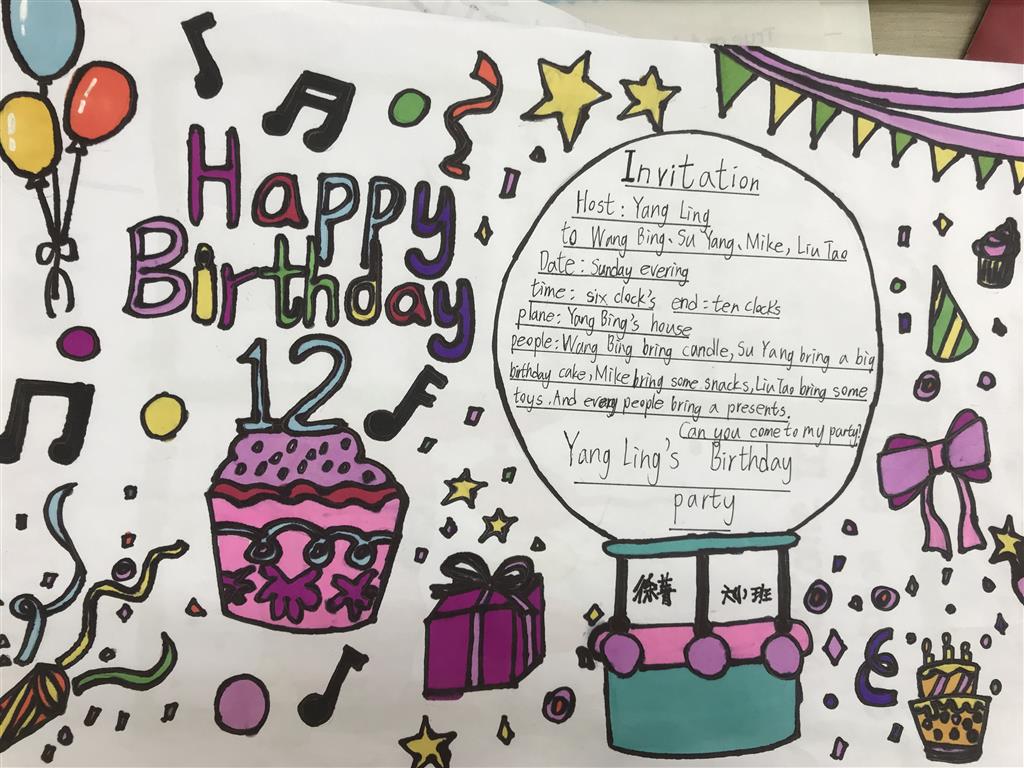 Happy
Birthday
12
Invitation
Host : Yang Ling
to Wang Bing、Su Yang、Mike, Liu Tao
Date : Sunday evering
time : six clock's end : ten clocks
plane : Yang Bing's house
people : Wang Bing bring candle, Su Yang bring a big
birthday cake, Mike bring some snacks, Liu Tao bring some
toys. And every people bring a presents.
Can you come to my party?
Yang Ling's Birthday
party